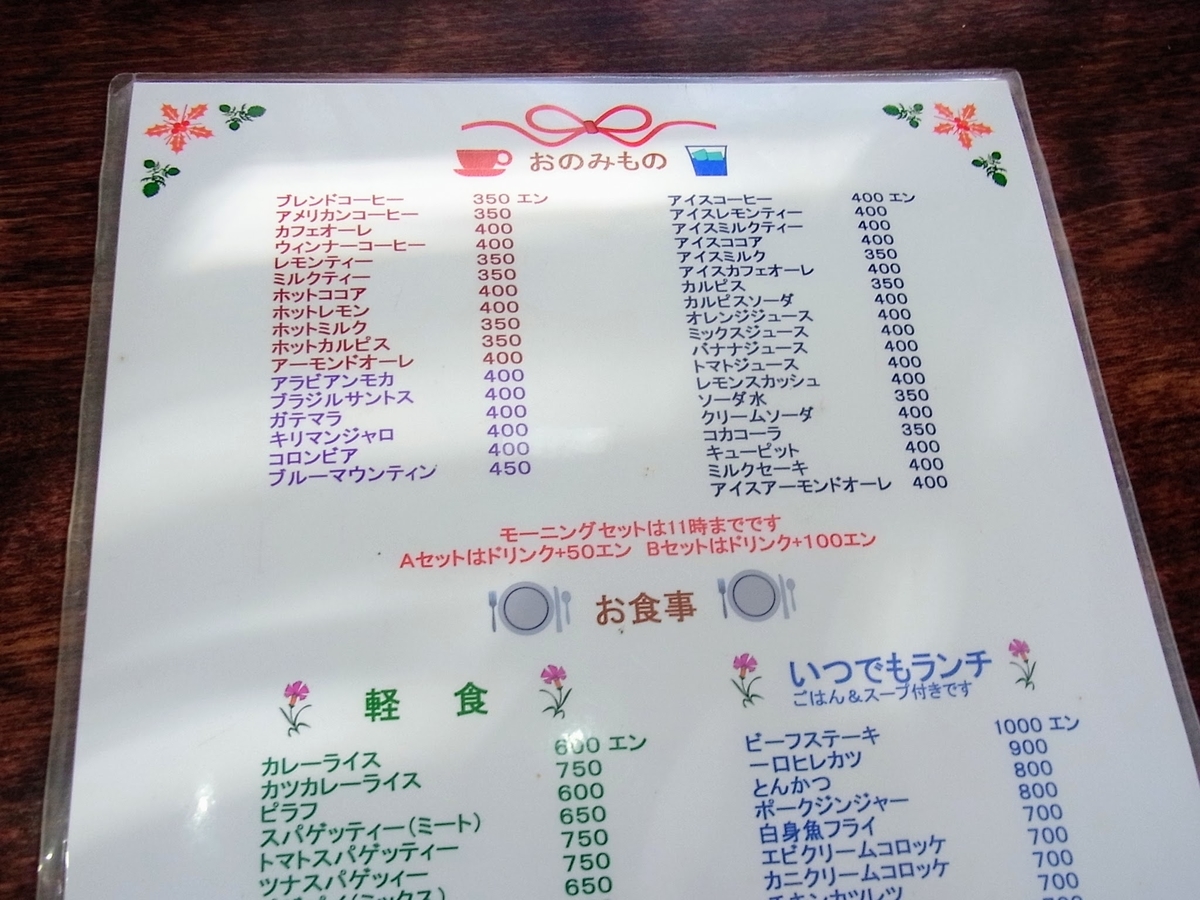 おのみもの
ブレンドコーヒー 350 エン
アメリカンコーヒー 350
カフェオーレ 400
ウィンナーコーヒー 400
レモンティー 350
ミルクティー 350
ホットココア 400
ホットレモン 400
ホットミルク 350
ホットカルピス 350
アーモンドオーレ 400
アラビアンモカ 400
ブラジルサントス 400
ガテマラ 400
キリマンジャロ 400
コロンビア 400
ブルーマウンティン 450
アイスコーヒー 400 エン
アイスレモンティー 400
アイスミルクティー 400
アイスココア 400
アイスミルク 350
アイスカフェオーレ 400
カルピス 350
カルピスソーダ 400
オレンジジュース 400
ミックスジュース 400
バナナジュース 400
トマトジュース 400
レモンスカッシュ 400
ソーダ水 350
クリームソーダ 400
コカコーラ 350
キューピット 400
ミルクセーキ 400
アイスアーモンドオーレ 400
モーニングセットは11時までです
Aセットはドリンク+50エン Bセットはドリンク+100エン
お食事
軽 食
カレーライス 600 エン
カツカレーライス 750
ピラフ 600
スパゲッティー(ミート) 650
トマトスパゲッティー 750
ツナスパゲッィー 750
650
いつでもランチ
ごはん&スープ付きです
ビーフステーキ 1000 エン
一口ヒレカツ 900
とんかつ 800
ポークジンジャー 800
白身魚フライ 700
エビクリームコロッケ 700
カニクリームコロッケ 700
チキンカツレツ 700